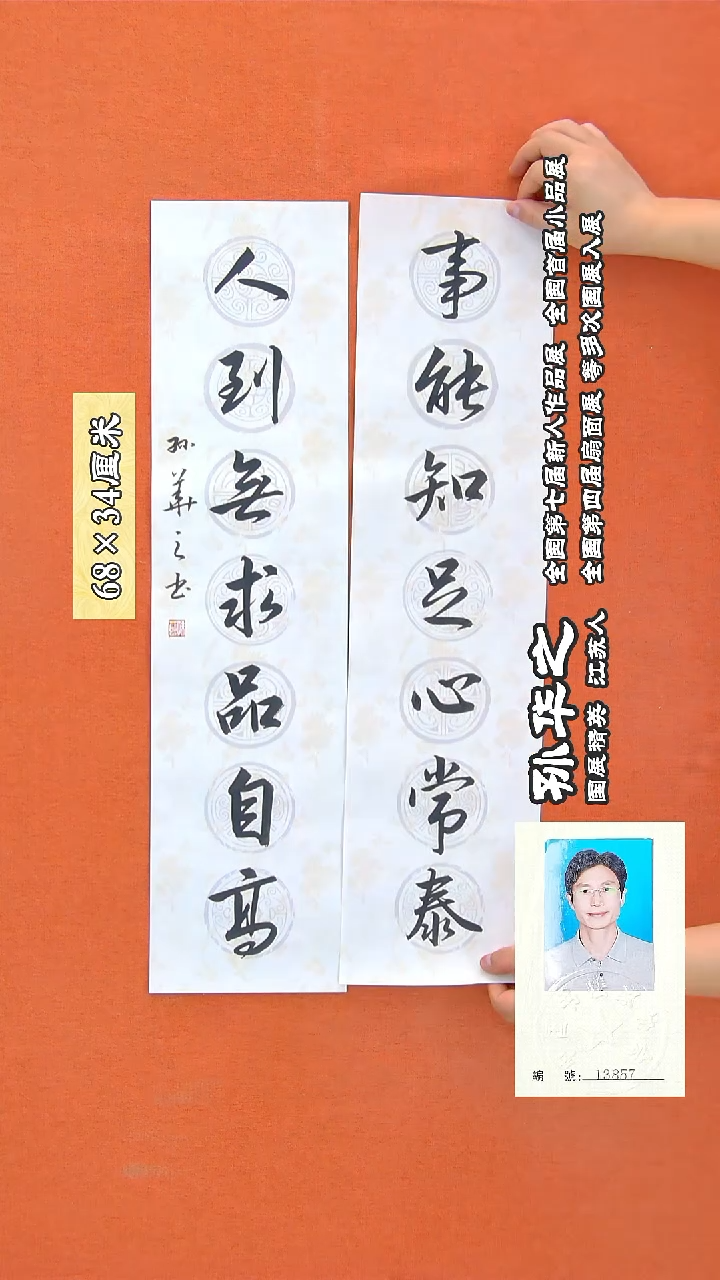 事能知足心常泰
人到無求品自高
孙華之书
68×34厘米
孙华之
国展精英 江苏人
全国第七届新人作品展 全国首届小品展
全国第四届扇面展 等多次国展入展
編 號: 13857